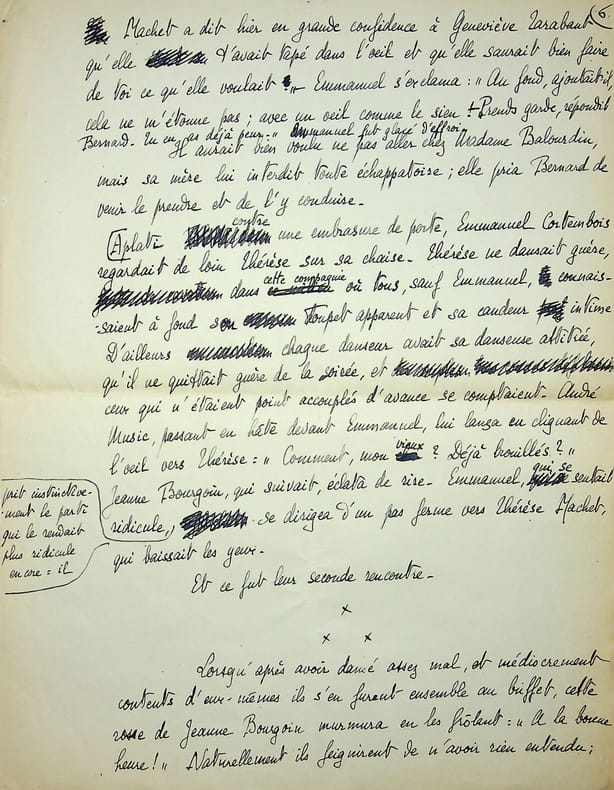 6.
Machet a dit hier en grande confidence à Geneviève Tarabant
qu'elle t'avait tapé dans l'oeil et qu'elle saurait bien faire
de toi ce qu'elle voulait ! " Emmanuel s'exclama : " Au fond, ajoutait-il,
cela ne m'étonne pas ; avec un oeil comme le sien ! - Prends garde, répondit
Bernard. Tu en as déjà peur. " Emmanuel fut glacé d'effroi.
Il aurait bien voulu ne pas aller chez Madame Balourdin,
mais sa mère lui interdit toute échappatoire ; elle pria Bernard de
venir le prendre et de l'y conduire.
Aplati contre une embrasure de porte, Emmanuel Cortembois
regardait de loin Thérèse sur sa chaise. Thérèse ne dansait guère,
dans cette compagnie où tous, sauf Emmanuel, connais-
-saient à fond son toupet apparent et sa candeur intime
D'ailleurs chaque danseur avait sa danseuse attitrée,
qu'il ne quittait guère de la soirée, et
ceux qui n'étaient point accouplés d'avance se comptaient. André
Music, passant en hâte devant Emmanuel, lui lança en clignant de
l'oeil vers Thérèse : " Comment, mon vieux ? Déjà brouillés ? "
Jeanne Bourgoin, qui suivait, éclata de rire. Emmanuel, qui se sentait
ridicule, se dirigea d'un pas ferme vers Thérèse Machet,
prit instinctive-
-ment le parti
qui le rendait
plus ridicule
encore : il
qui baissait les yeux.
Et ce fut leur seconde rencontre.
x
x x
Lorsqu'après avoir dansé assez mal, et médiocrement
contents d'eux-mêmes ils s'en furent ensemble au buffet, cette
rosse de Jeanne Bourgoin murmura en les frôlant : " A la bonne
heure ! " Naturellement ils feignirent de n'avoir rien entendu ;